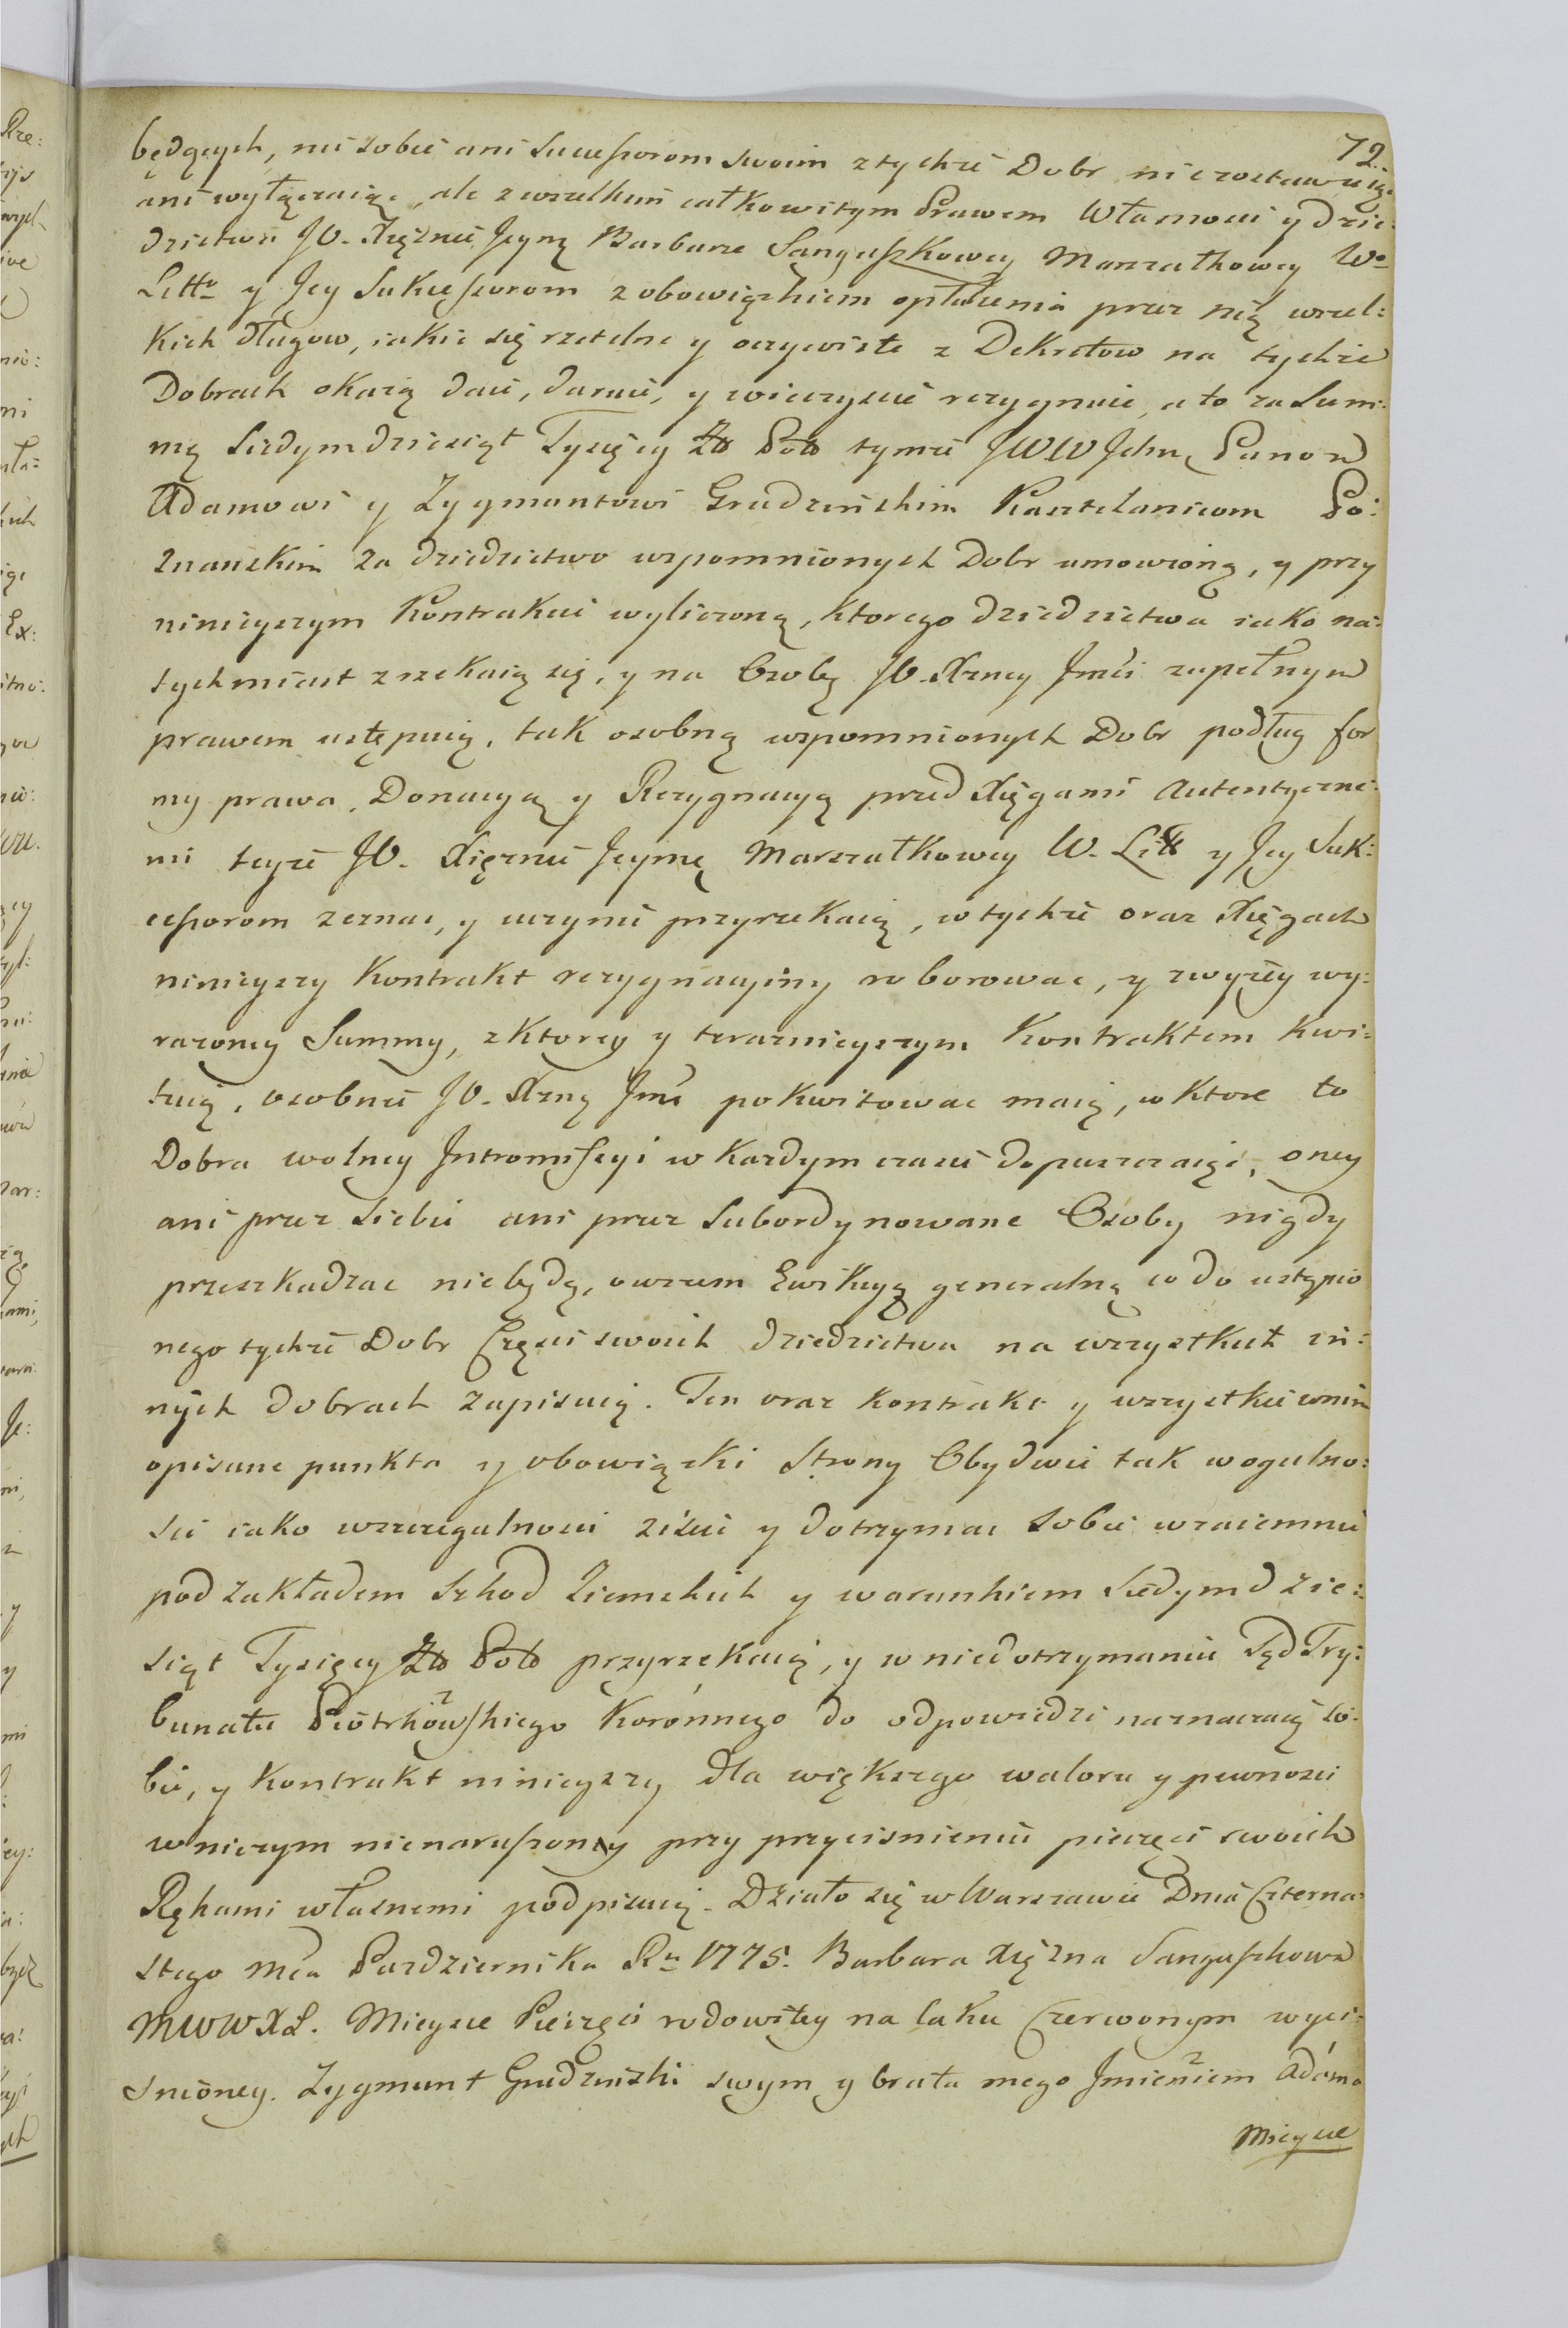 72.
będących, nic sobie ani Sukcessorom swoim z tychże Dobr nie zostawuiąc
ani wyłączaiąc, ale z wszelkim całkowitym Prawem Własnosci y Dzie:
dzictwa JO. Xiężnie Jeymę Barbarze Sanguszkowey Marszałkowey Wo
Litto y Jey Sukcessorom z obowiązkiem opłacenia przez nię wszel:
kich długow, iakie się rzetelne y oczywiste z Dekretow na tychże
Dobrach okażą daie, daruie, y wieczyscie rezygnuie, a to za Sum:
mę Siedymdziesiąt Tysięcy Zło Polo tymże JWW Ichm Panow
Adamowi y Zygmuntowi Grudzinskim Kasztelanicom Po:
znanskim za dziedzictwo wspomnionych Dobr umowioną, y przy
ninieyszym Kontrakcie wyliczoną, ktorego dziedzictwa iako na:
tychmiast zrzekaią się, y na Osobę JO. Xzney Jmci zupełnym
prawem ustępuią, tak osobną wspomnionych Dobr podług for
my prawa, Donacyą y Rezygnacyą przed Xięgami Autentyczne:
mi teyże JO. Xiężnie Jeymę Marszałkowey W. Litt y Jey Suk:
cessorom zeznac, y uczynic przyrzekaią, w tychże oraz Xięgach
ninieyszy Kontrakt rezygnacyiny roborowac, y zwyżey wy:
rażoney Summy, z ktorey y teraznieyszym Kontraktem kwi:
tuią, osobnie JO. Xznę Jmć pokwitowac maią, w ktore to
Dobra wolney Intromissyi w każdym czasie dopuszczaiąc, oney
ani przez siebie ani przez Subordynowane Osoby nigdy
przeszkadzac niebędą, owszem Ewikcyą generalną co do ustąpio
nego tychże Dobr Częsci swoich dziedzictwa na wszystkich in:
nych dobrach zapisuią. Ten oraz kontrakt y wszystkie w nim
opisane punkta y obowiązki Strony Obydwie tak w ogulno:
sci iako w szczegulnosci ziscic y dotrzymac sobie wzaiemnie
pod zakładem Szkod Ziemskich y warunkiem Siedymdzie:
siąt Tysięcy Zło Polo przyrzekaią, y w niedotrzymaniu Sąd Try:
bunału Piotrkowskiego Koronnego do odpowiedzi naznaczaią so:
bie, y Kontrakt ninieyszy dla większego waloru y pewnosci
w niczym nienaruszony przy przycisnieniu pieczęci swoich
Rękami własnemi podpisuią. Działo się w Warszawie Dnia Czterna:
stego Mca Pazdziernika Ru 1775. Barbara Xiężna Sanguszkowa
MWWXL. Mieysce Pieczęci rodowitey na laku Czerwonym wyci:
snioney. Zygmunt Grudzinski swym y brata mego Imieniem Adama
Mieysce